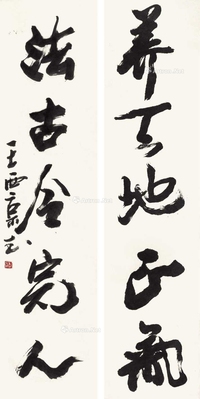 养天地正氣
法古今完人
王西京